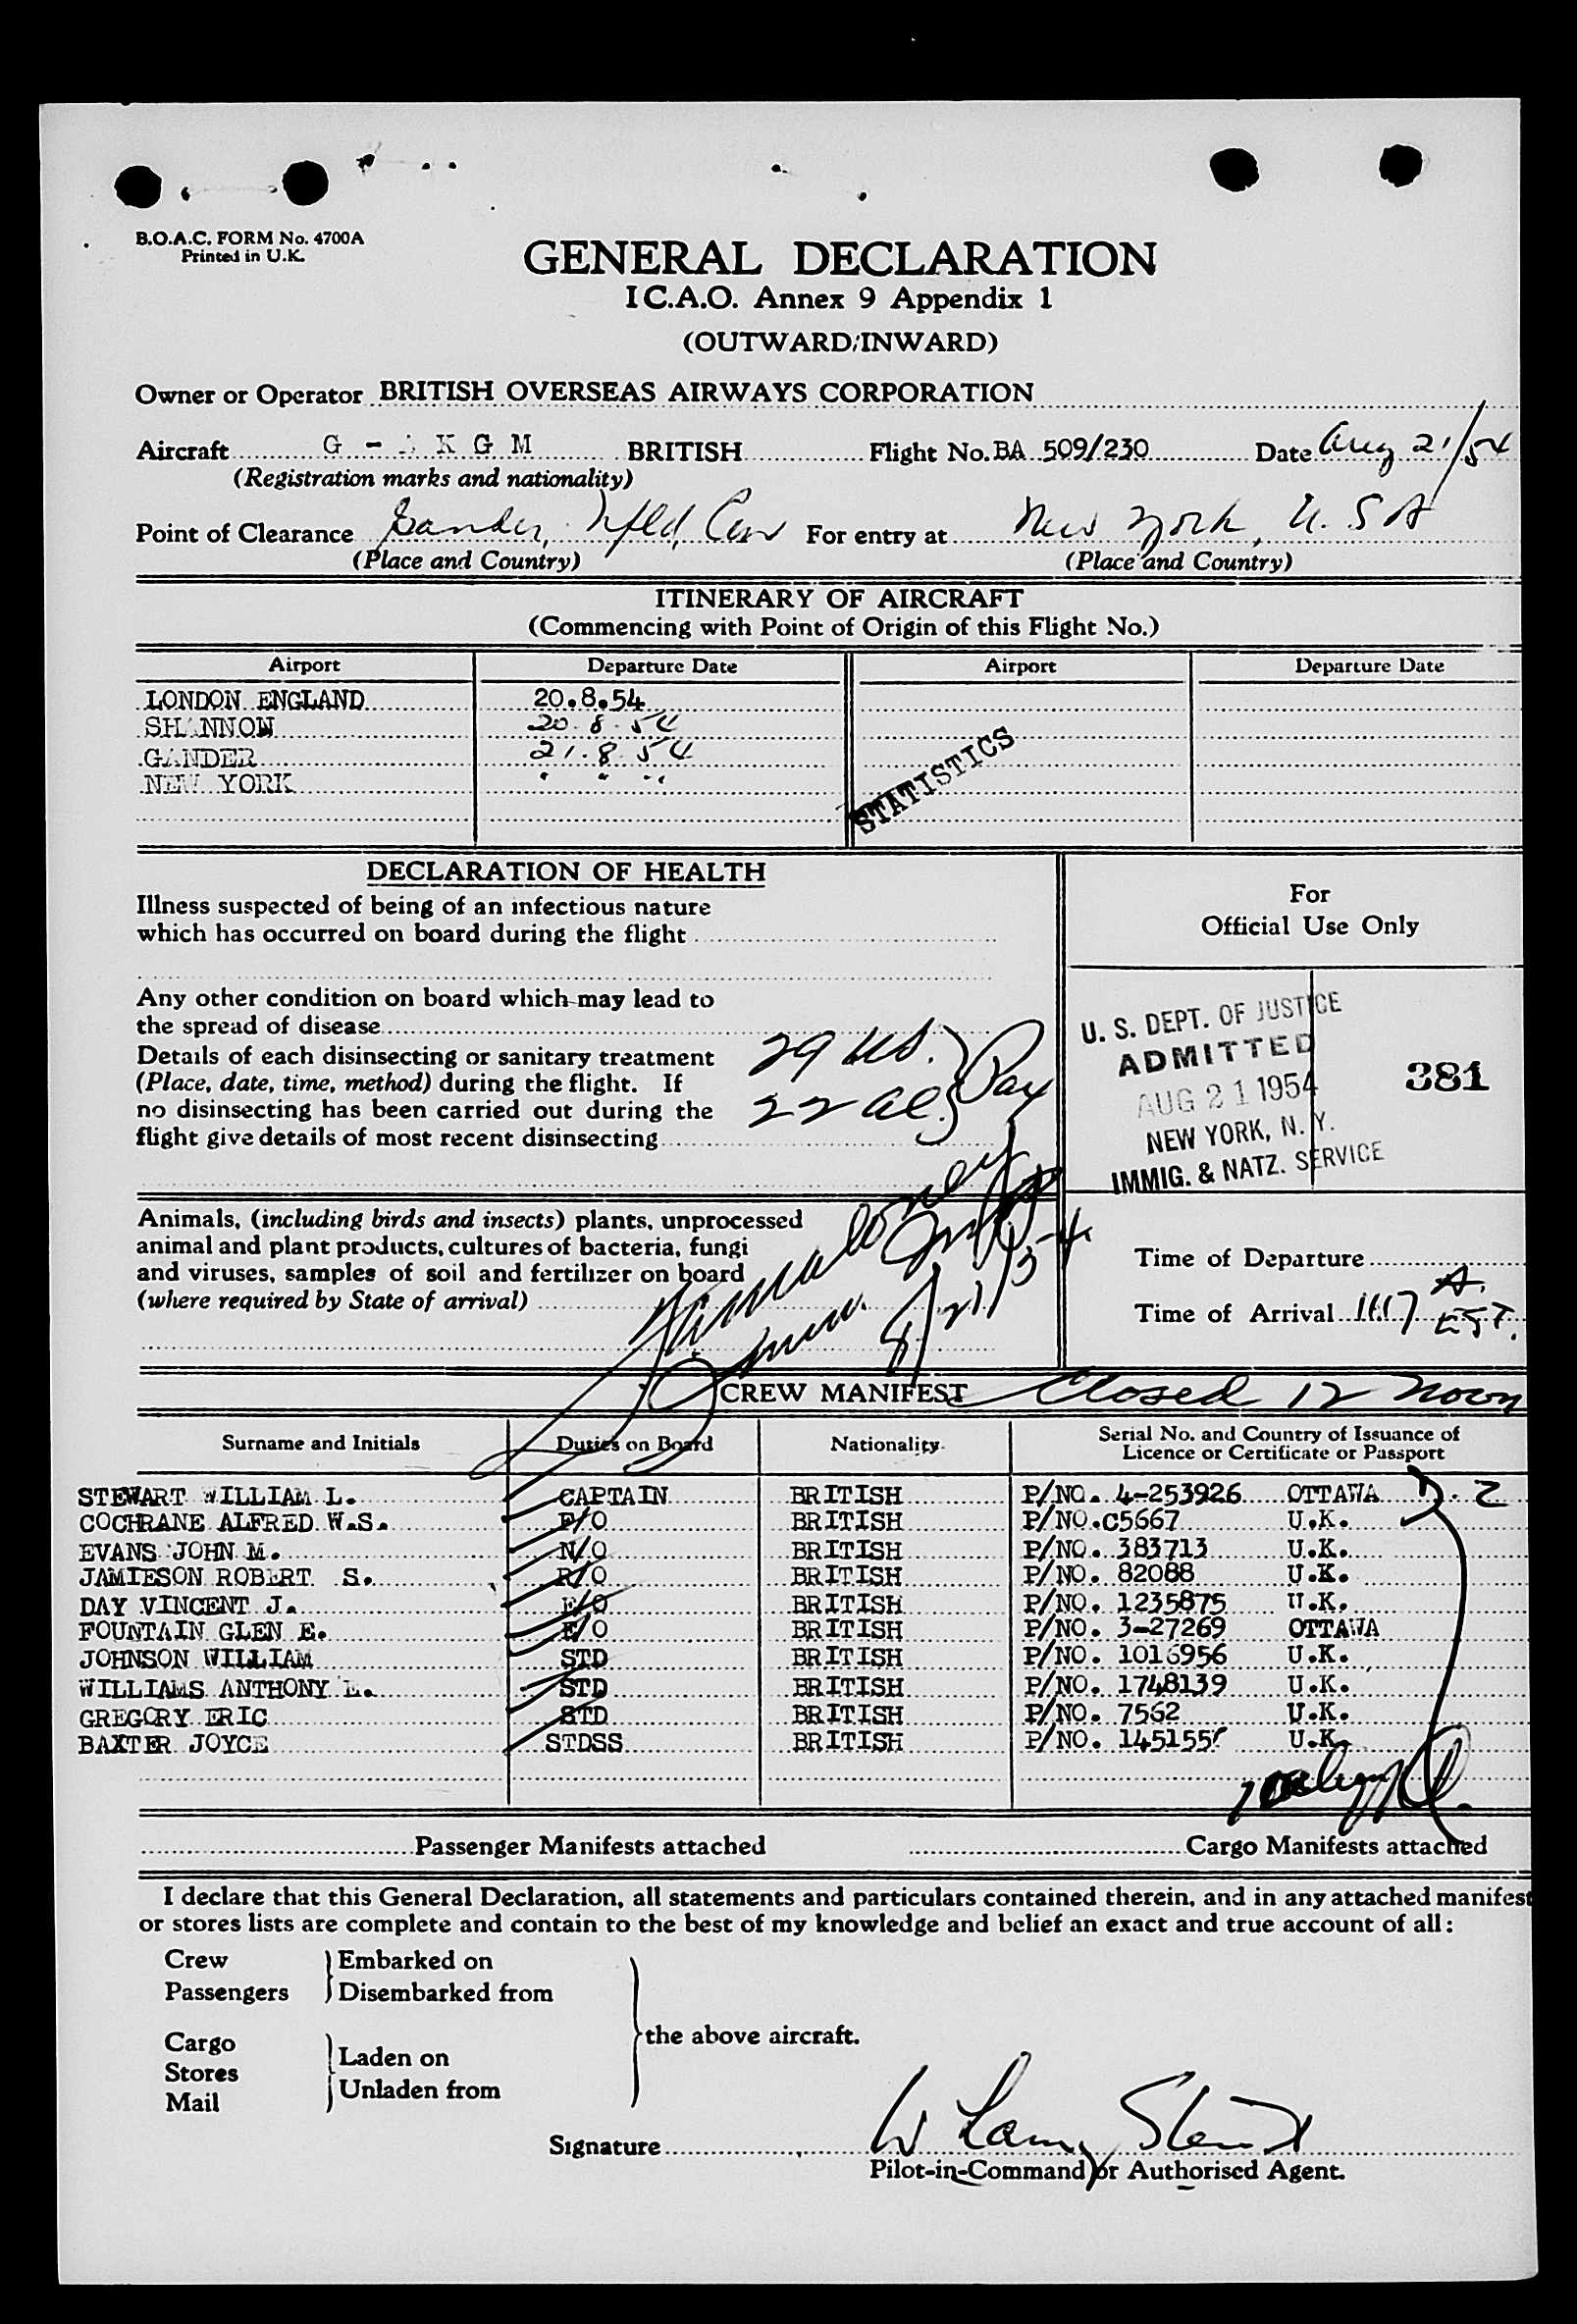 B.O.A.C. FORM No. 4700A
Printed in U.K.
GENERAL DECLARATION
I C.A.O. Annex 9 Appendix 1
(OUTWARD/INWARD)
Owner or Operator BRITISH OVERSEAS AIRWAYS CORPORATION
Aircraft G - K G M BRITISH Flight No. BA 509/230 Date Aug 21/54
(Registration marks and nationality)
Point of Clearance Gander, Nfld, Can For entry at New York, U.S.A
(Place and Country) (Place and Country)
ITINERARY OF AIRCRAFT
(Commencing with Point of Origin of this Flight No.)
Airport Departure Date Airport Departure Date
LONDON ENGLAND 20.8.54
SHANNON 20.8.54
GANDER 21.8.54
NEW YORK " " "
STATISTICS
DECLARATION OF HEALTH
Illness suspected of being of an infectious nature
which has occurred on board during the flight
Any other condition on board which may lead to
the spread of disease
Details of each disinsecting or sanitary treatment
(Place, date, time, method) during the flight. If
no disinsecting has been carried out during the
flight give details of most recent disinsecting
29 US.
22 al.
For
Official Use Only
U. S. DEPT. OF JUSTICE
ADMITTED
AUG 21 1954
NEW YORK, N. Y.
IMMIG. & NATZ. SERVICE
381
Animals, (including birds and insects) plants, unprocessed
animal and plant products, cultures of bacteria, fungi
and viruses, samples of soil and fertilizer on board
(where required by State of arrival)
8/21/54
Time of Departure
Time of Arrival 1117 A. EST.
CREW MANIFEST Closed 12 noon
Surname and Initials Duties on Board Nationality Serial No. and Country of Issuance of
Licence or Certificate or Passport
STEWART WILLIAM L. CAPTAIN BRITISH P/NO. 4-253926 OTTAWA
COCHRANE ALFRED W.S. F/O BRITISH P/NO.C5667 U.K.
EVANS JOHN M. N/O BRITISH P/NO. 383713 U.K.
JAMIESON ROBERT S. R/O BRITISH P/NO. 82088 U.K.
DAY VINCENT J. E/O BRITISH P/NO. 1235875 U.K.
FOUNTAIN GLEN E. E/O BRITISH P/NO. 3-27269 OTTAWA
JOHNSON WILLIAM STD BRITISH P/NO. 1016956 U.K.
WILLIAMS ANTHONY STD BRITISH P/NO. 1748139 U.K.
GREGORY ERIC STD BRITISH P/NO. 7562 U.K.
BAXTER JOYCE STDSS BRITISH P/NO. U.K.
Passenger Manifests attached Cargo Manifests attached
I declare that this General Declaration, all statements and particulars contained therein, and in any attached manifest
or stores lists are complete and contain to the best of my knowledge and belief an exact and true account of all:
Crew Embarked on
Passengers Disembarked from
the above aircraft.
Cargo
Stores
Mail
Laden on
Unladen from
Signature
Pilot-in-Command or Authorised Agent.